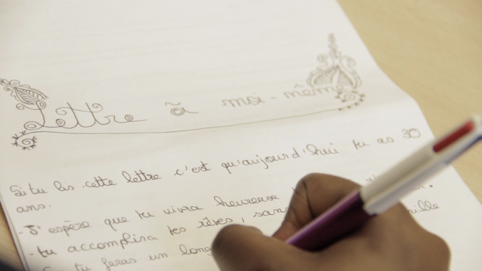 Lettre à moi-même
Si tu lis cette lettre c'est qu'aujourd'hui tu as 30
ans.
- J'espère que tu vivra heureuse
- tu accomplira tes rêves, sans
tu feras un long